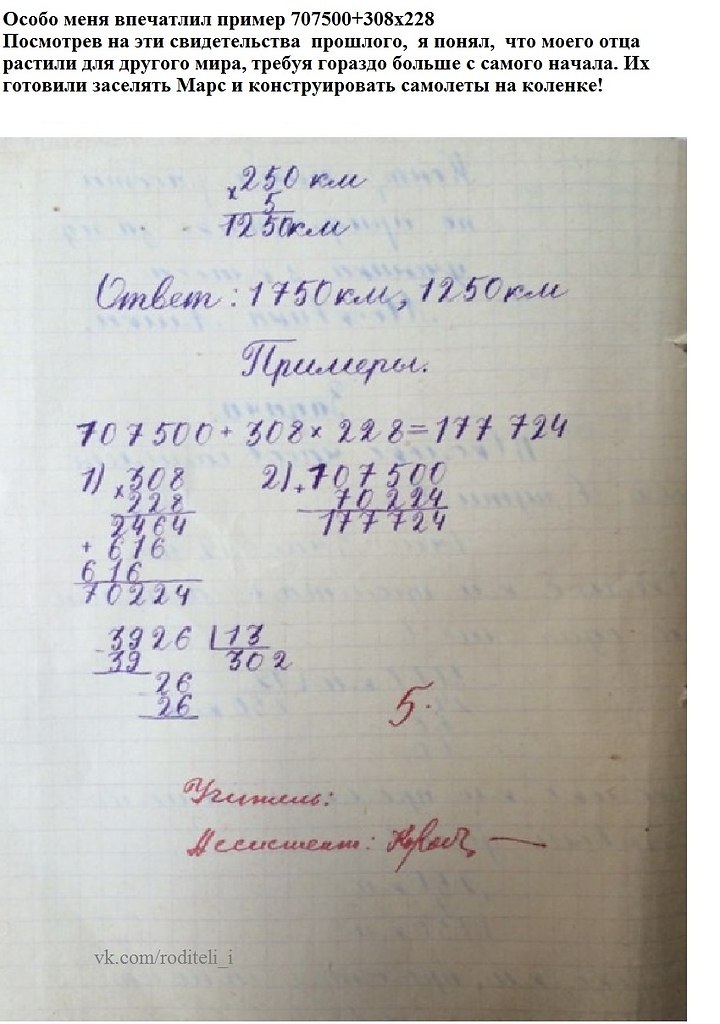 Особо меня впечатлил пример 707500+308x228
Посмотрев на эти свидетельства прошлого, я понял, что моего отца
растили для другого мира, требуя гораздо больше с самого начала. Их
готовили заселять Марс и конструировать самолеты на коленке!
×250 км
5
1250км
Ответ: 1750км, 1250км
Примеры.
707500+308×228=177724
1) ×308 2) +107500
228 70224
2464 177724
+ 616
616
70224
-3926 |13
39 302
26
26
5.
Учитель:
Ассистент:
vk.com/roditeli_i